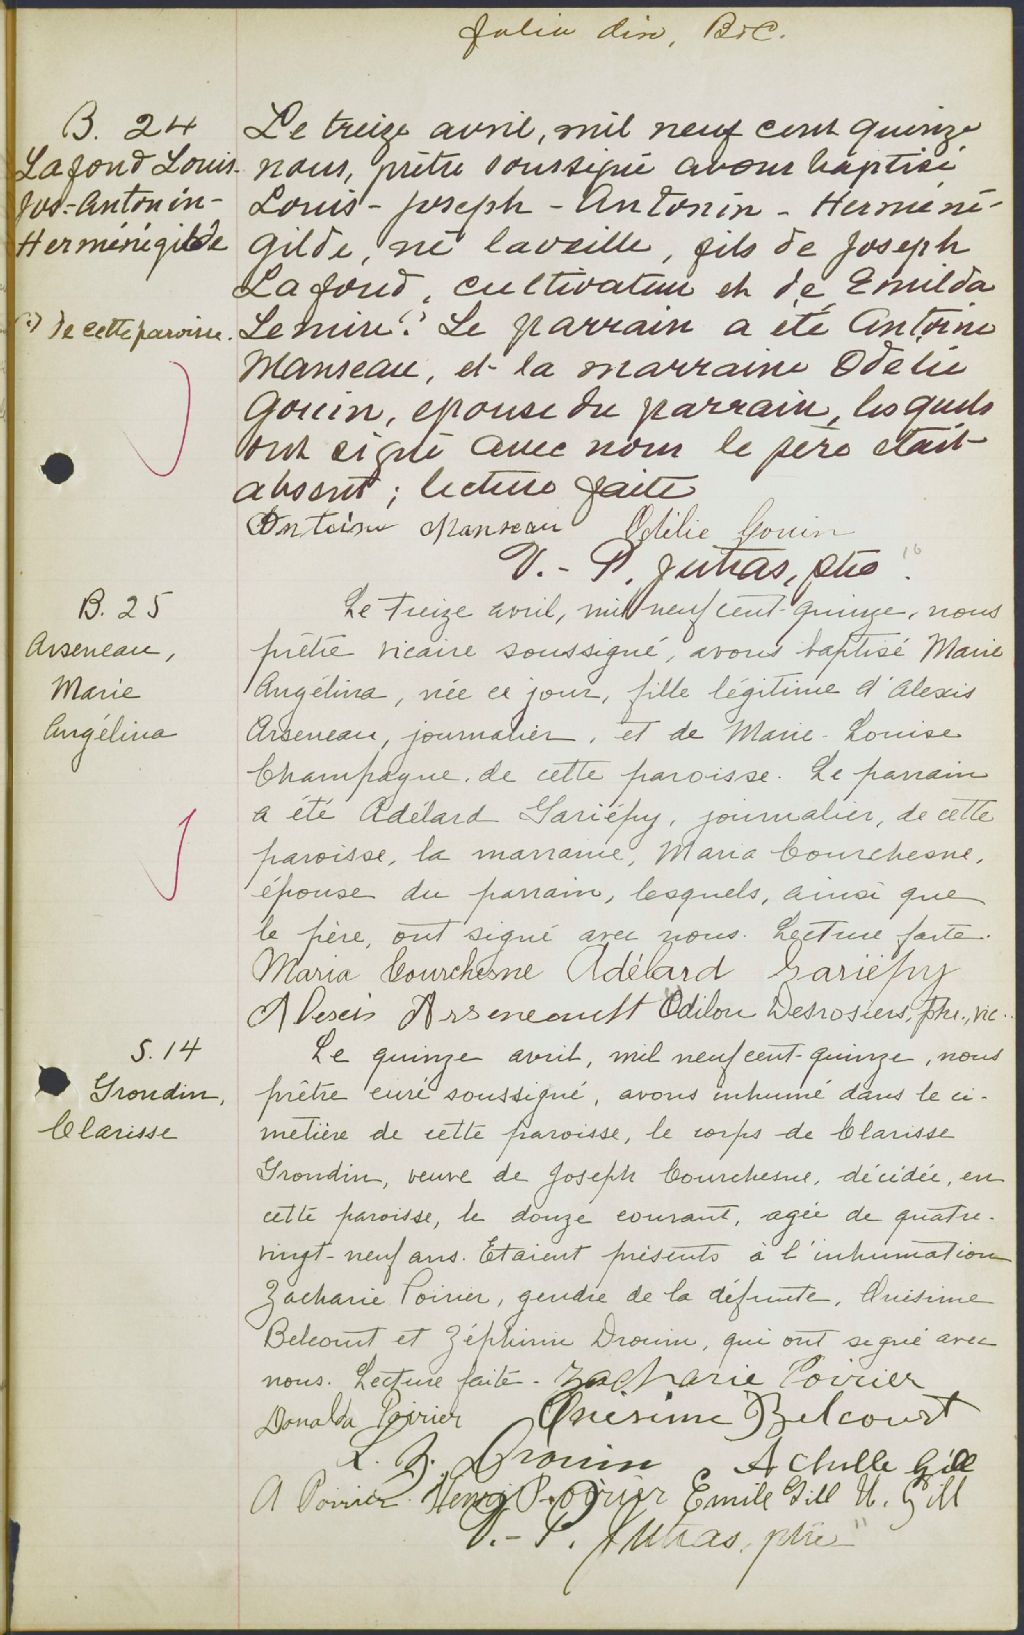 B. 24
Lafond Louis-
Jos.-Antonin-
Herménégilde
(.) de cette paroisse.
Le treize avril, mil neuf cent quinze
nous, prêtre soussigné avons baptisé
Louis-Joseph-Antonin-Herméné-
gilde, né la veille, fils de Joseph
Lafond, cultivateur et de Emilda
Lemire (.) Le parrain a été Antoine
Manseau, et la marraine Odélie
Gouin, épouse du parrain, lesquels
ont signé avec nous le père était
absent ; lecture faite
Antoine Manseau Odélie Gouin
V.-P. Jutras, ptre
B. 25
Arseneau,
Marie
Angélina
Le treize avril, mil neuf cent-quinze, nous
prêtre vicaire soussigné, avons baptisé Marie
Angélina, née ce jour, fille légitime d'Alexis
Arseneau, journalier, et de Marie-Louise
Champagne, de cette paroisse. Le parrain
a été Adélard Gariépy, journalier, de cette
paroisse, la marraine, Maria Courchesne,
épouse du parrain, lesquels, ainsi que
le père, ont signé avec nous. Lecture faite.
Maria Courchesne Adélard Gariépy
Alexis Arseneault Odilon Desrosiers, ptre., vic.
S. 14
Grondin,
Clarisse
Le quinze avril, mil neuf cent-quinze, nous
prêtre curé soussigné, avons inhumé dans le ci-
metière de cette paroisse, le corps de Clarisse
Grondin, veuve de Joseph Courchesne, décédée, en
cette paroisse, le douze courant, agée de quatre-
vingt-neuf ans. Etaient présents à l'inhumation
Zacharie Poirier, gendre de la défunte, Onésime
Belcourt et Zéphirin Drouin, qui ont signé avec
nous. Lecture faite. Zacharie Poirier
Donalda Poirier Onésime Belcourt
L. Z. Drouin Achille Gill
A Poirier Henri Poirier Emile Gill U. Gill
V.-P. Jutras, ptre